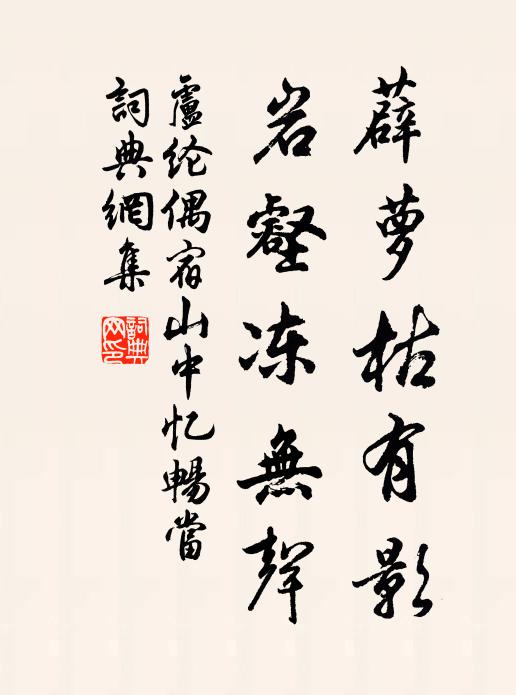 薜萝枯有影
岩壑冻無聲
盧纶偶宿山中忆暢當
詞典網集
詞典
网印